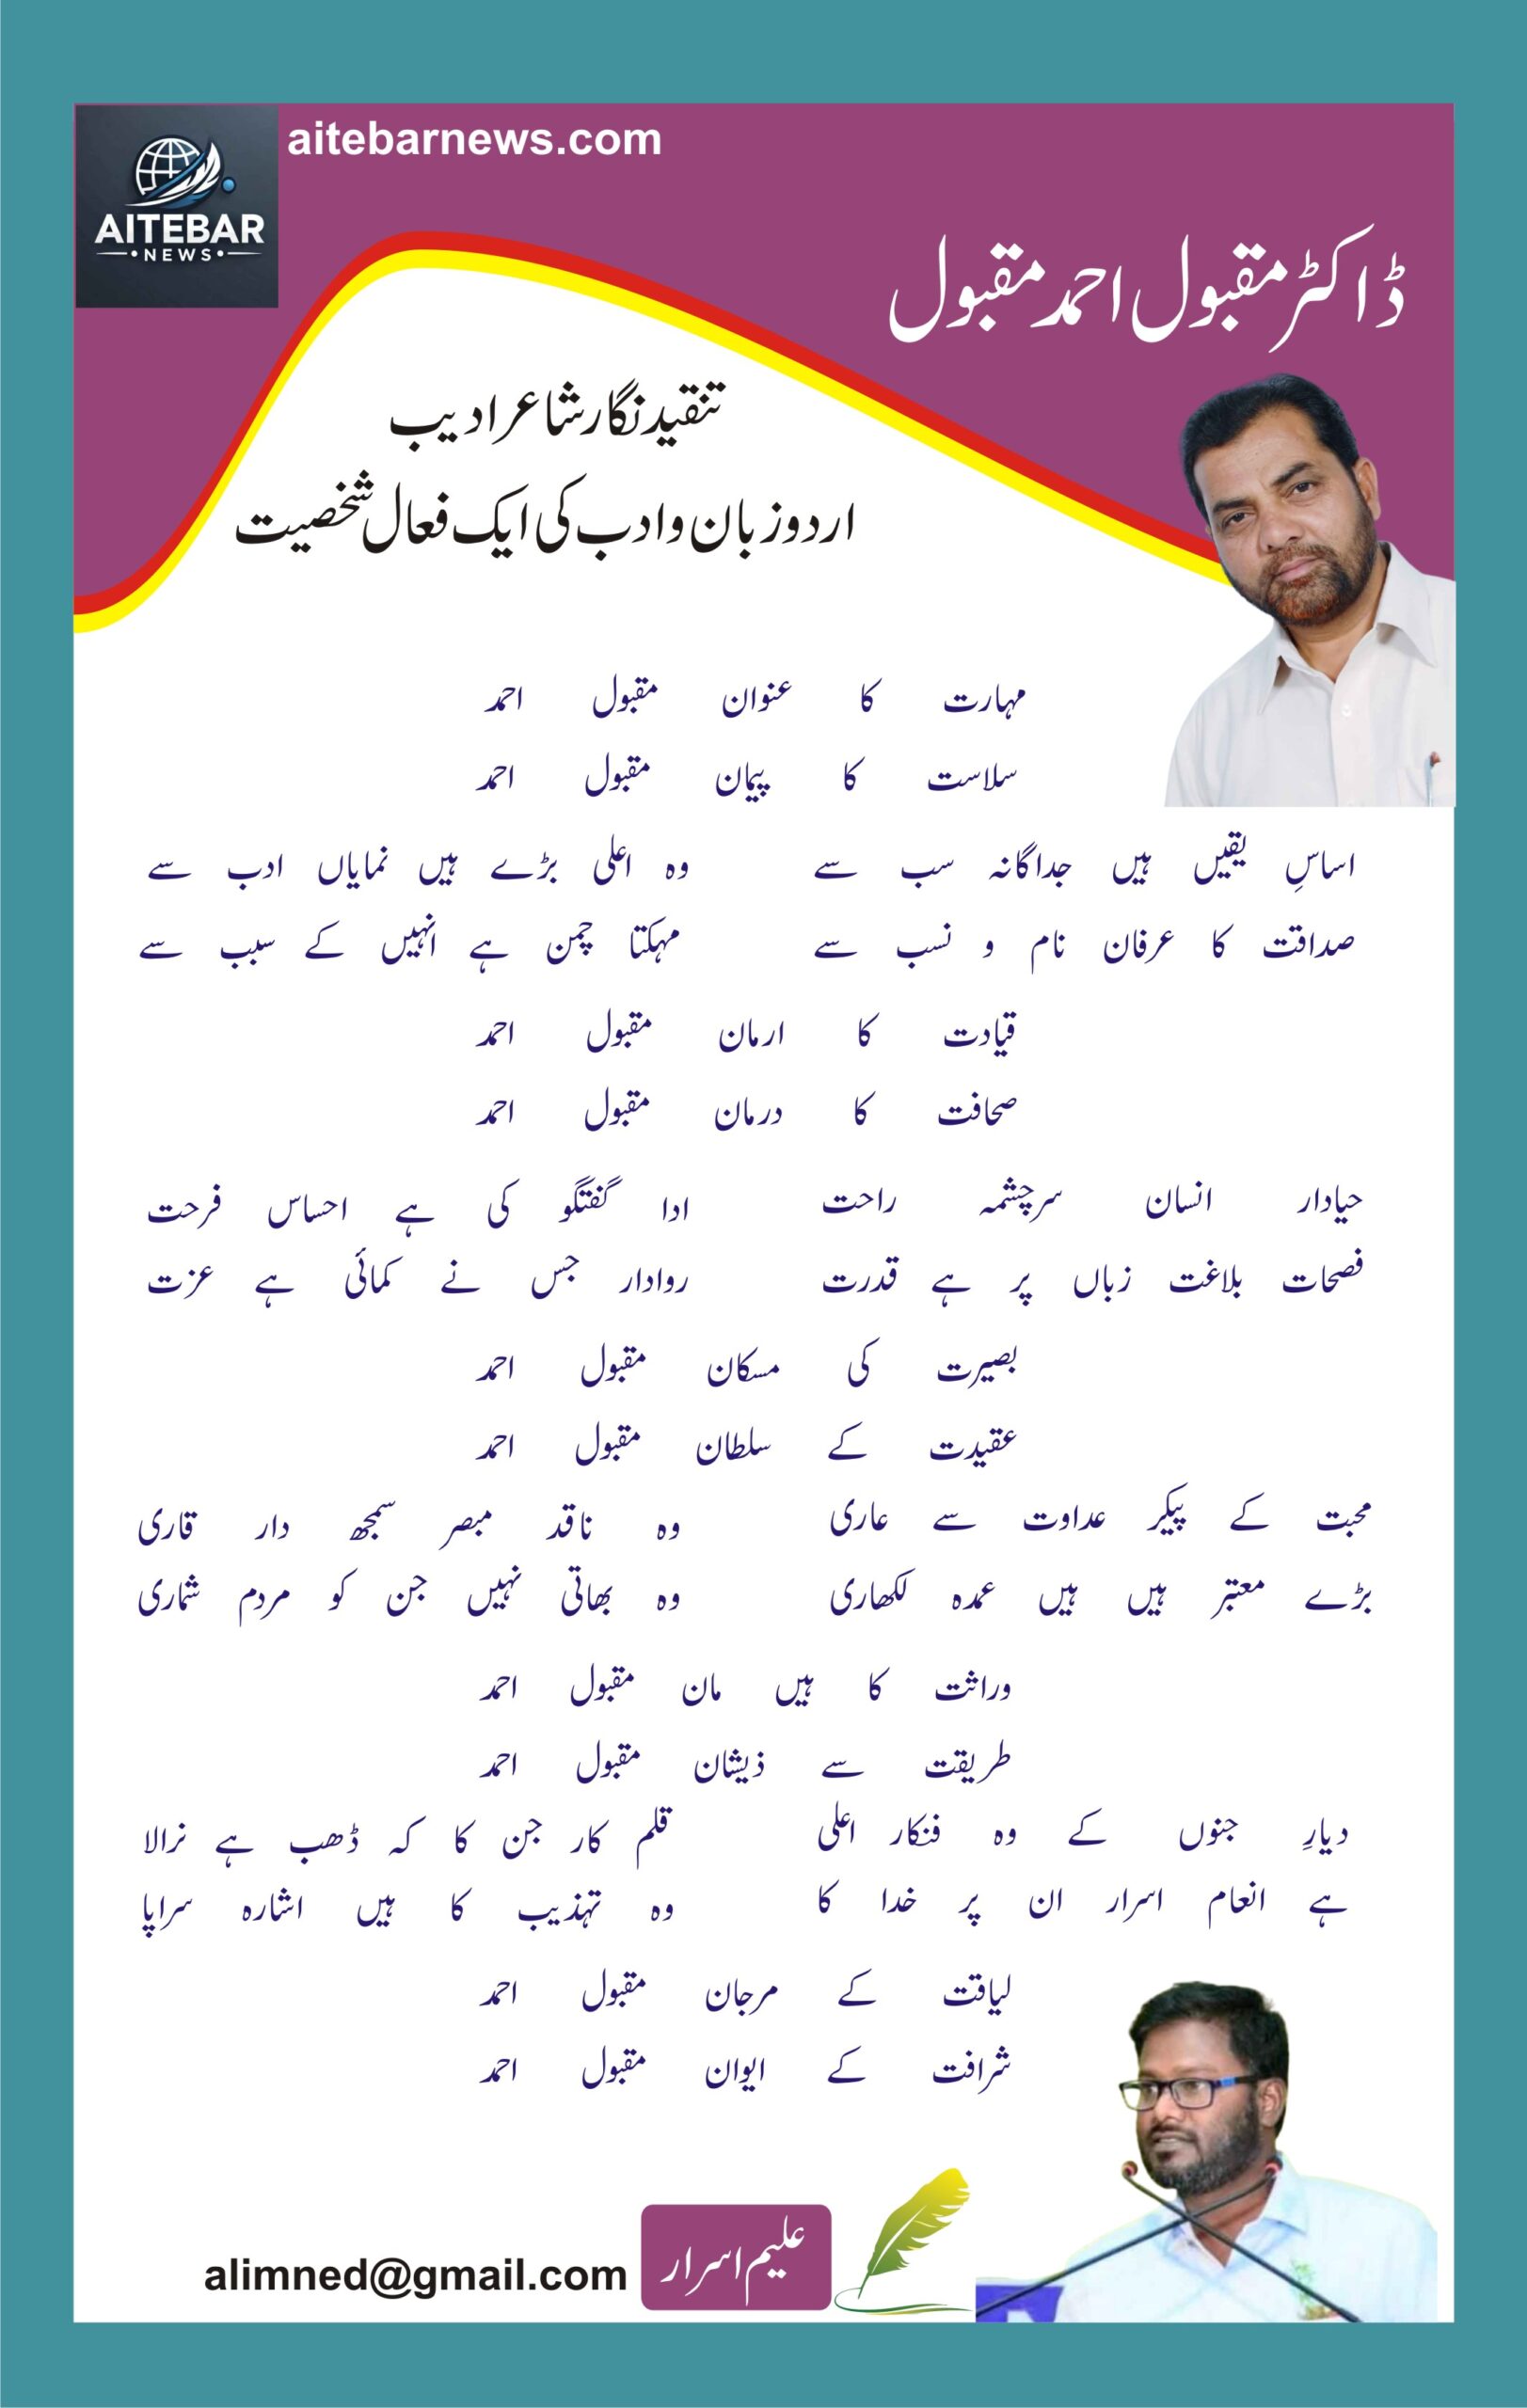 aitebarnews.com
AITEBAR
NEWS
ڈاکٹر مقبول احمد مقبول
تنقید نگار شاعر ادیب
اردو زبان و ادب کی ایک فعال شخصیت
مہارت کا عنوان مقبول احمد
سلاست کا پیمان مقبول احمد
اساسِ یقیں ہیں جداگانہ سب سے وہ اعلی بڑے ہیں نمایاں ادب سے
صداقت کا عرفان نام و نسب سے مہکتا چمن ہے انہیں کے سبب سے
قیادت کا ارمان مقبول احمد
صحافت کا درمان مقبول احمد
حیادار انسان سرچشمہ راحت ادا گفتگو کی ہے احساس فرحت
فصحات بلاغت زباں پر ہے قدرت روادار جس نے کمائی ہے عزت
بصیرت کی مسکان مقبول احمد
عقیدت کے سلطان مقبول احمد
محبت کے پیکر عداوت سے عاری وہ ناقد مبصر سمجھ دار قاری
بڑے معتبر ہیں ہیں عمدہ لکھاری وہ بھاتی نہیں جن کو مردم شماری
وراثت کا ہیں مان مقبول احمد
طریقت سے ذیشان مقبول احمد
دیارِ جنوں کے وہ فنکار اعلی قلم کار جن کا کہ ڈھب ہے نرالا
ہے انعام اسرار ان پر خدا کا وہ تہذیب کا ہیں اشارہ سراپا
لیاقت کے مرجان مقبول احمد
شرافت کے ایوان مقبول احمد
علیم اسرار
alimned@gmail.com